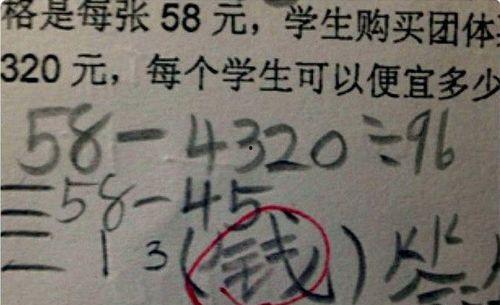 格是每张 58 元，学生购买团体
320 元，每个学生可以便宜多少
58-4320÷96
=58-45
=13(钱)